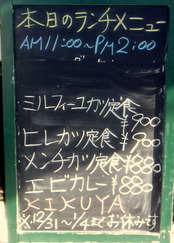 本日のランチメニュー
AM11:00～PM2:00
ミルフィーユカツ定食
¥900
ヒレカツ定食¥900
メンチカツ定食¥880
エビカレー¥880
KIKUYA
※12/31～1/4までお休みです